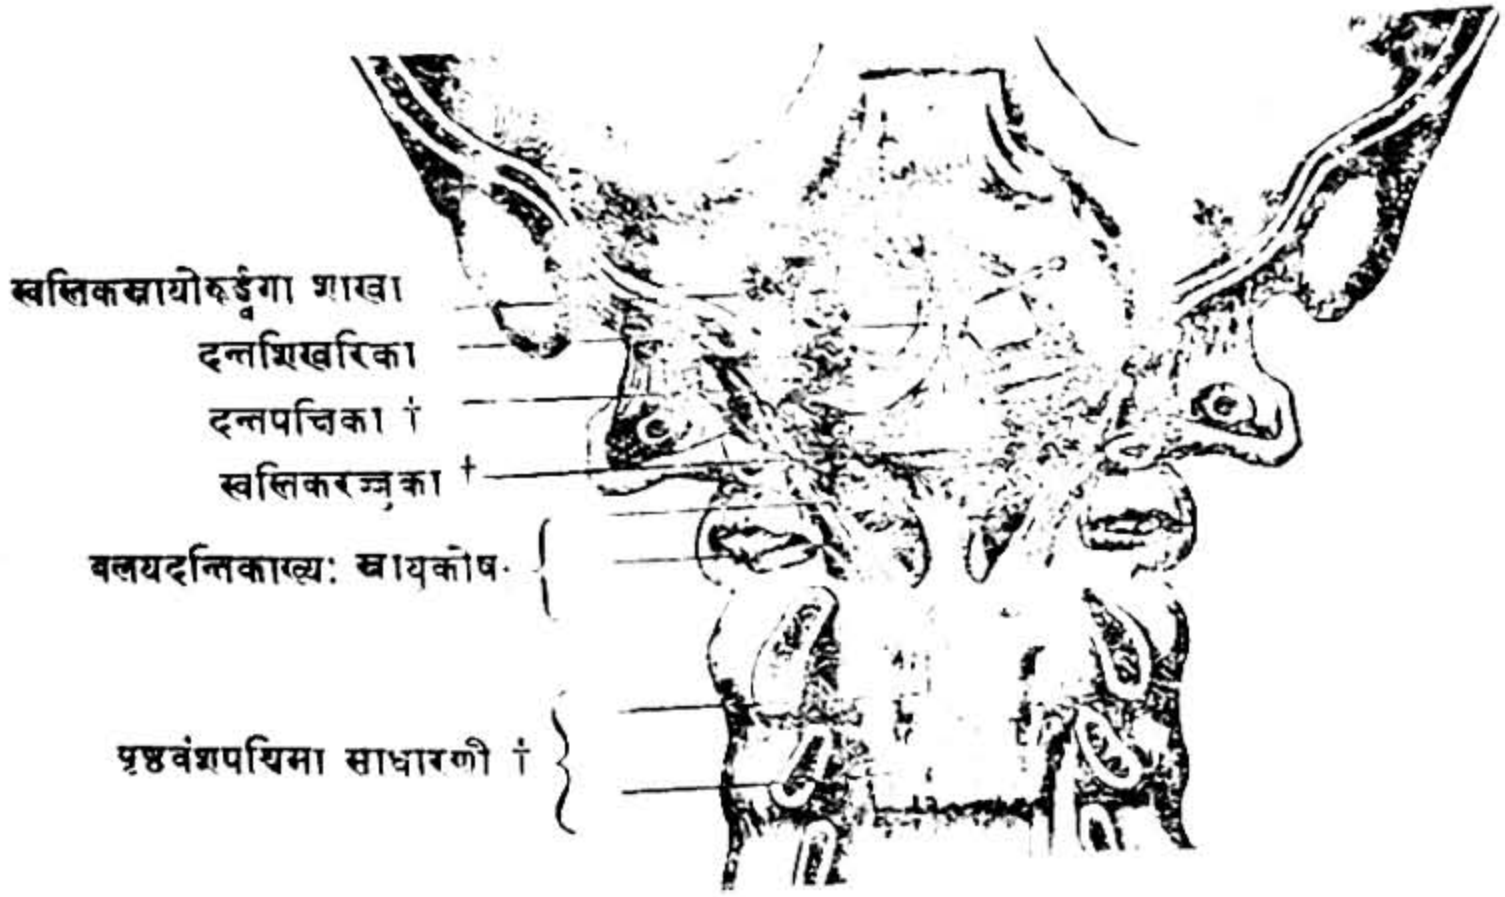 स्वस्तिकस्नायोरूर्द्ध्वगा शाखा
दन्तशिखरिका
दन्तपत्त्रिका †
स्वस्तिकरज्जुका †
वलयदन्तिकाख्यः स्नायुकोषः
पृष्ठवंशपश्चिमा साधारणी †